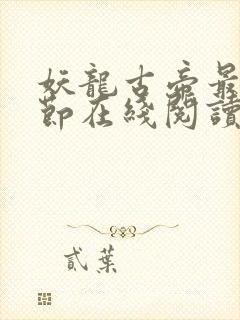 妖龍古帝最
節在綫閱讀
貳葉